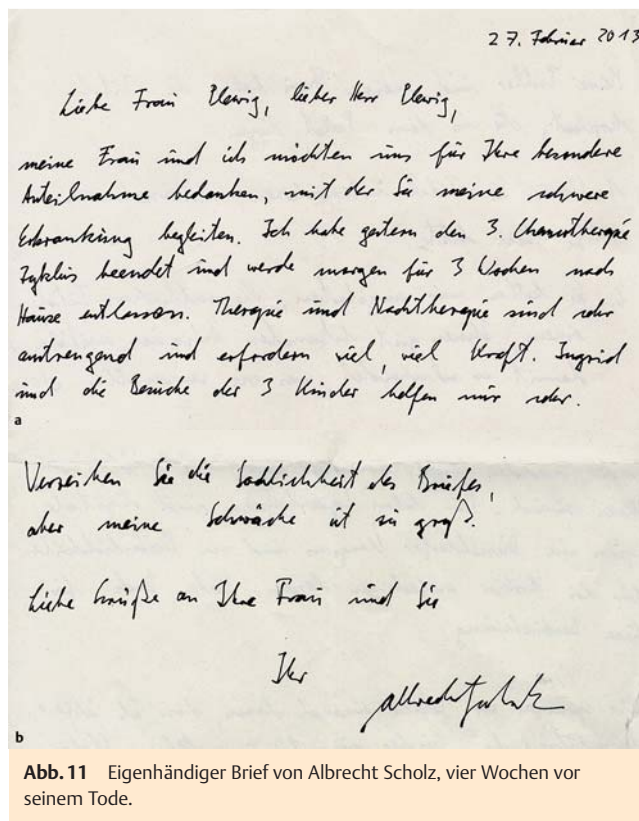 27. Februar 2013
Liebe Frau Plewig, lieber Herr Plewig,
meine Frau und ich möchten uns für Ihre besondere
Anteilnahme bedanken, mit der Sie meine schwere
Erkrankung begleiten. Ich habe gestern den 3. Chemotherapie
Zyklus beendet und werde morgen für 3 Wochen nach
Hause entlassen. Therapie und Nachtherapie sind sehr
anstrengend und erfordern viel, viel Kraft. Ingrid
und die Besuche der 3 Kinder helfen mir sehr.
a
Verzeihen Sie die Sachlichkeit des Briefes,
aber meine Schwäche ist zu groß.
Liebe Grüße an Ihre Frau und Sie
Ihr
Albrecht Scholz
b
Abb. 11 Eigenhändiger Brief von Albrecht Scholz, vier Wochen vor
seinem Tode.